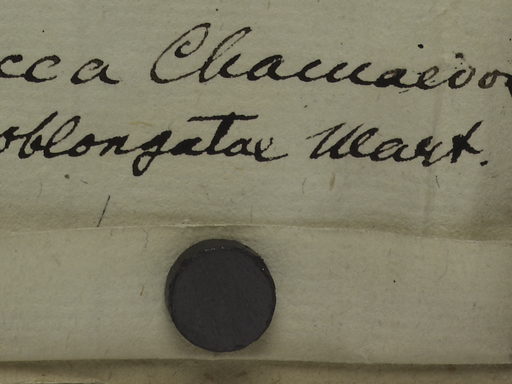 cca Chamaedor
oblongatae Mart.